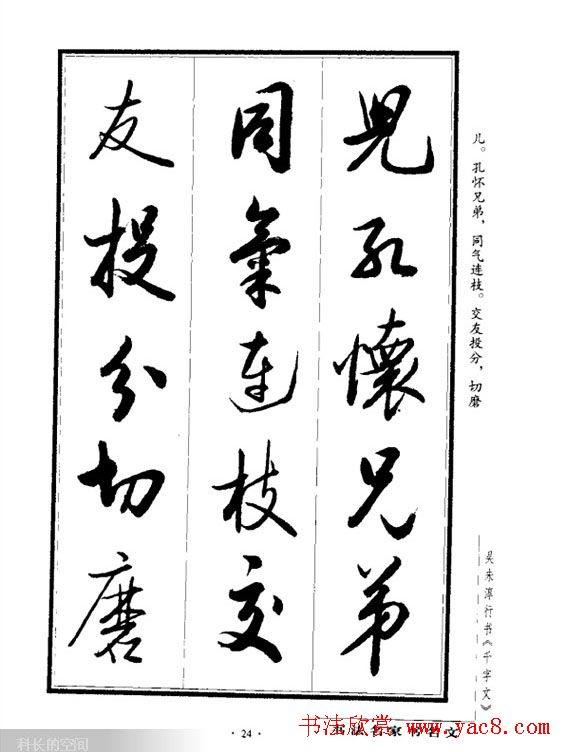 兒孔懷兄弟
同氣連枝交
友投分切磨
儿。孔怀兄弟，同气连枝。交友投分，切磨
吴未淳行书《千字文》
· 24 ·
书法欣赏 www.yac8.com
科长的空间